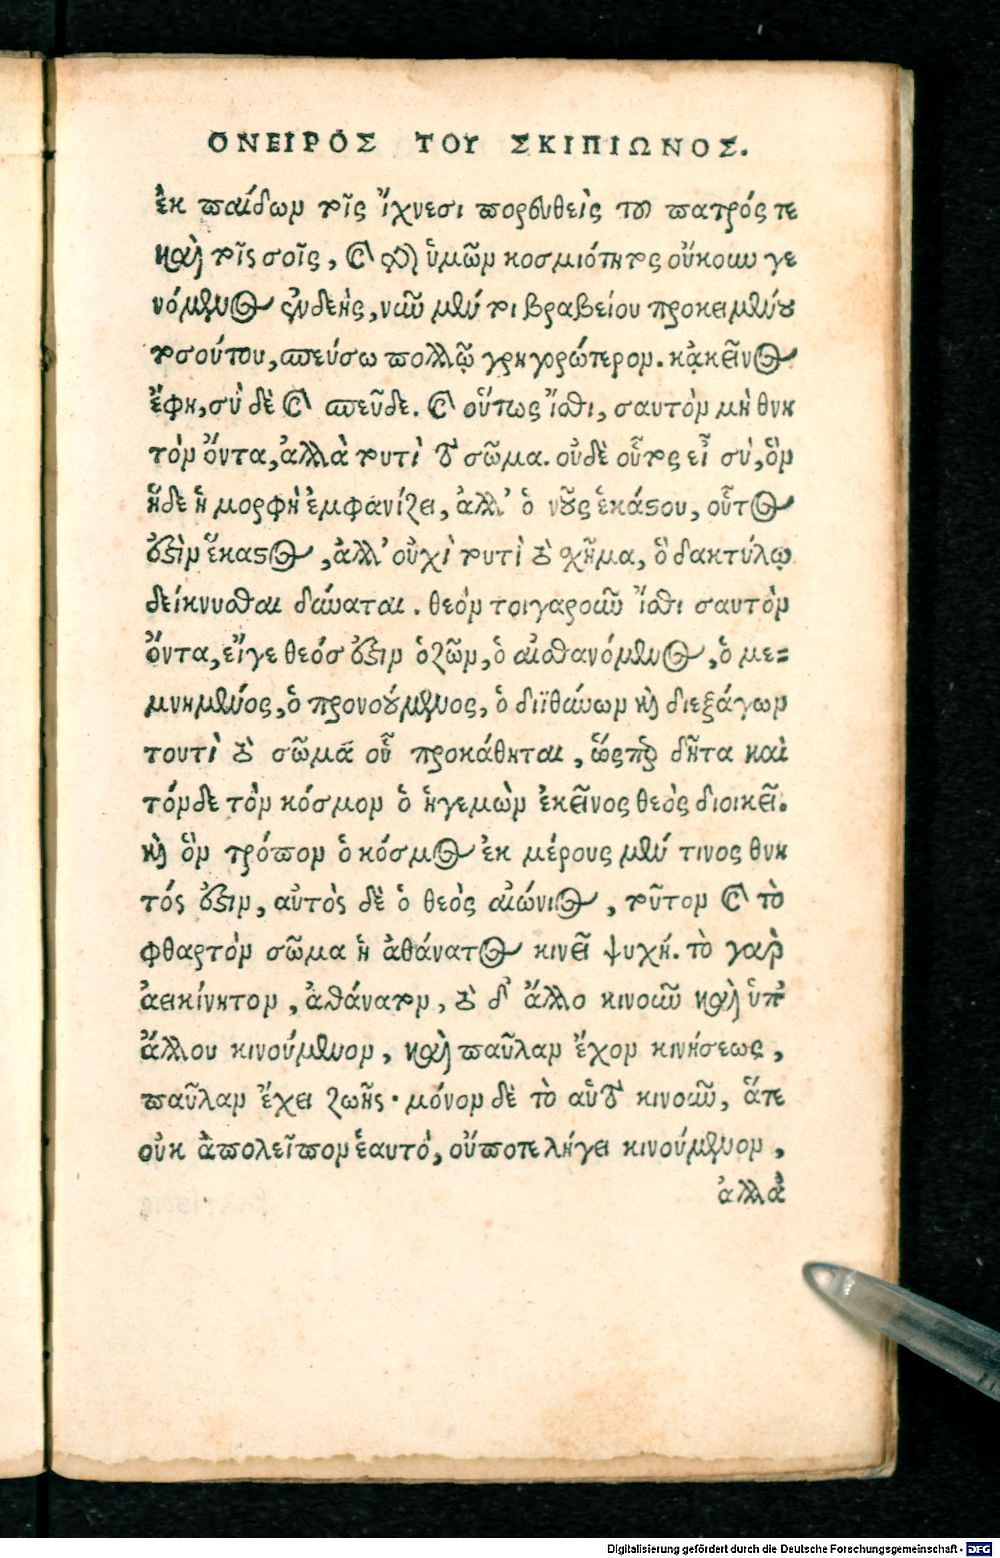 ΟΝΕΙΡΟΣ ΤΟΥ ΣΚΙΠΙΩΝΟΣ.
ἐκ παίδων τοῖς ἴχνεσι πορευθεὶς τοῦ πατρός τε
καὶ τοῖς σοῖς, καὶ τῆς ὑμῶν κοσμιότητος οὔκουν γε
νόμενος ἐνδεὴς, νῦν μέντοι βραβείου προκειμένου
τοσούτου, σπεύσω πολλῷ γρηγορώτερον. κᾀκεῖνος
ἔφη, σὺ δὲ καὶ σπεῦδε. καὶ οὕτως ἴσθι, σαυτὸν μὴ θνη
τὸν ὄντα, ἀλλὰ τουτὶ τὸ σῶμα. οὐδὲ οὗτος εἶ σύ, ὃν
ἥδε ἡ μορφὴ ἐμφανίζει, ἀλλ' ὁ νοῦς ἑκάστου, οὗτος
ἐστὶν ἕκαστος, ἀλλ' οὐχὶ τουτὶ τὸ σχῆμα, ὃ δακτύλῳ
δείκνυσθαι δύναται. θεὸν τοιγαροῦν ἴσθι σαυτὸν
ὄντα, εἴγε θεός ἐστιν ὁ ζῶν, ὁ αἰσθανόμενος, ὁ με=
μνημένος, ὁ προνούμενος, ὁ διϊθύνων καὶ διεξάγων
τουτὶ τὸ σῶμά οὗ προκάθηται, ὥςπερ δῆτα καὶ
τόνδε τὸν κόσμον ὁ ἡγεμὼν ἐκεῖνος θεὸς διοικεῖ.
καὶ ὃν τρόπον ὁ κόσμος ἐκ μέρους μέν τινος θνη
τός ἐστιν, αὐτὸς δὲ ὁ θεὸς αἰώνιος, τοῦτον καὶ τὸ
φθαρτὸν σῶμα ἡ ἀθάνατος κινεῖ ψυχή. τὸ γαρ
ἀεικίνητον, ἀθάνατον, τὸ δ' ἄλλο κινοῦν καὶ ὑπ'
ἄλλου κινούμενον, καὶ παῦλαν ἔχον κινήσεως,
παῦλαν ἔχει ζωῆς· μόνον δὲ τὸ αὑτὸ κινοῦν, ἅτε
οὐκ ἀπολεῖπον ἑαυτό, οὔποτε λήγει κινούμενον,
ἀλλὰ
Digitalisierung gefördert durch die Deutsche Forschungsgemeinschaft - DFG